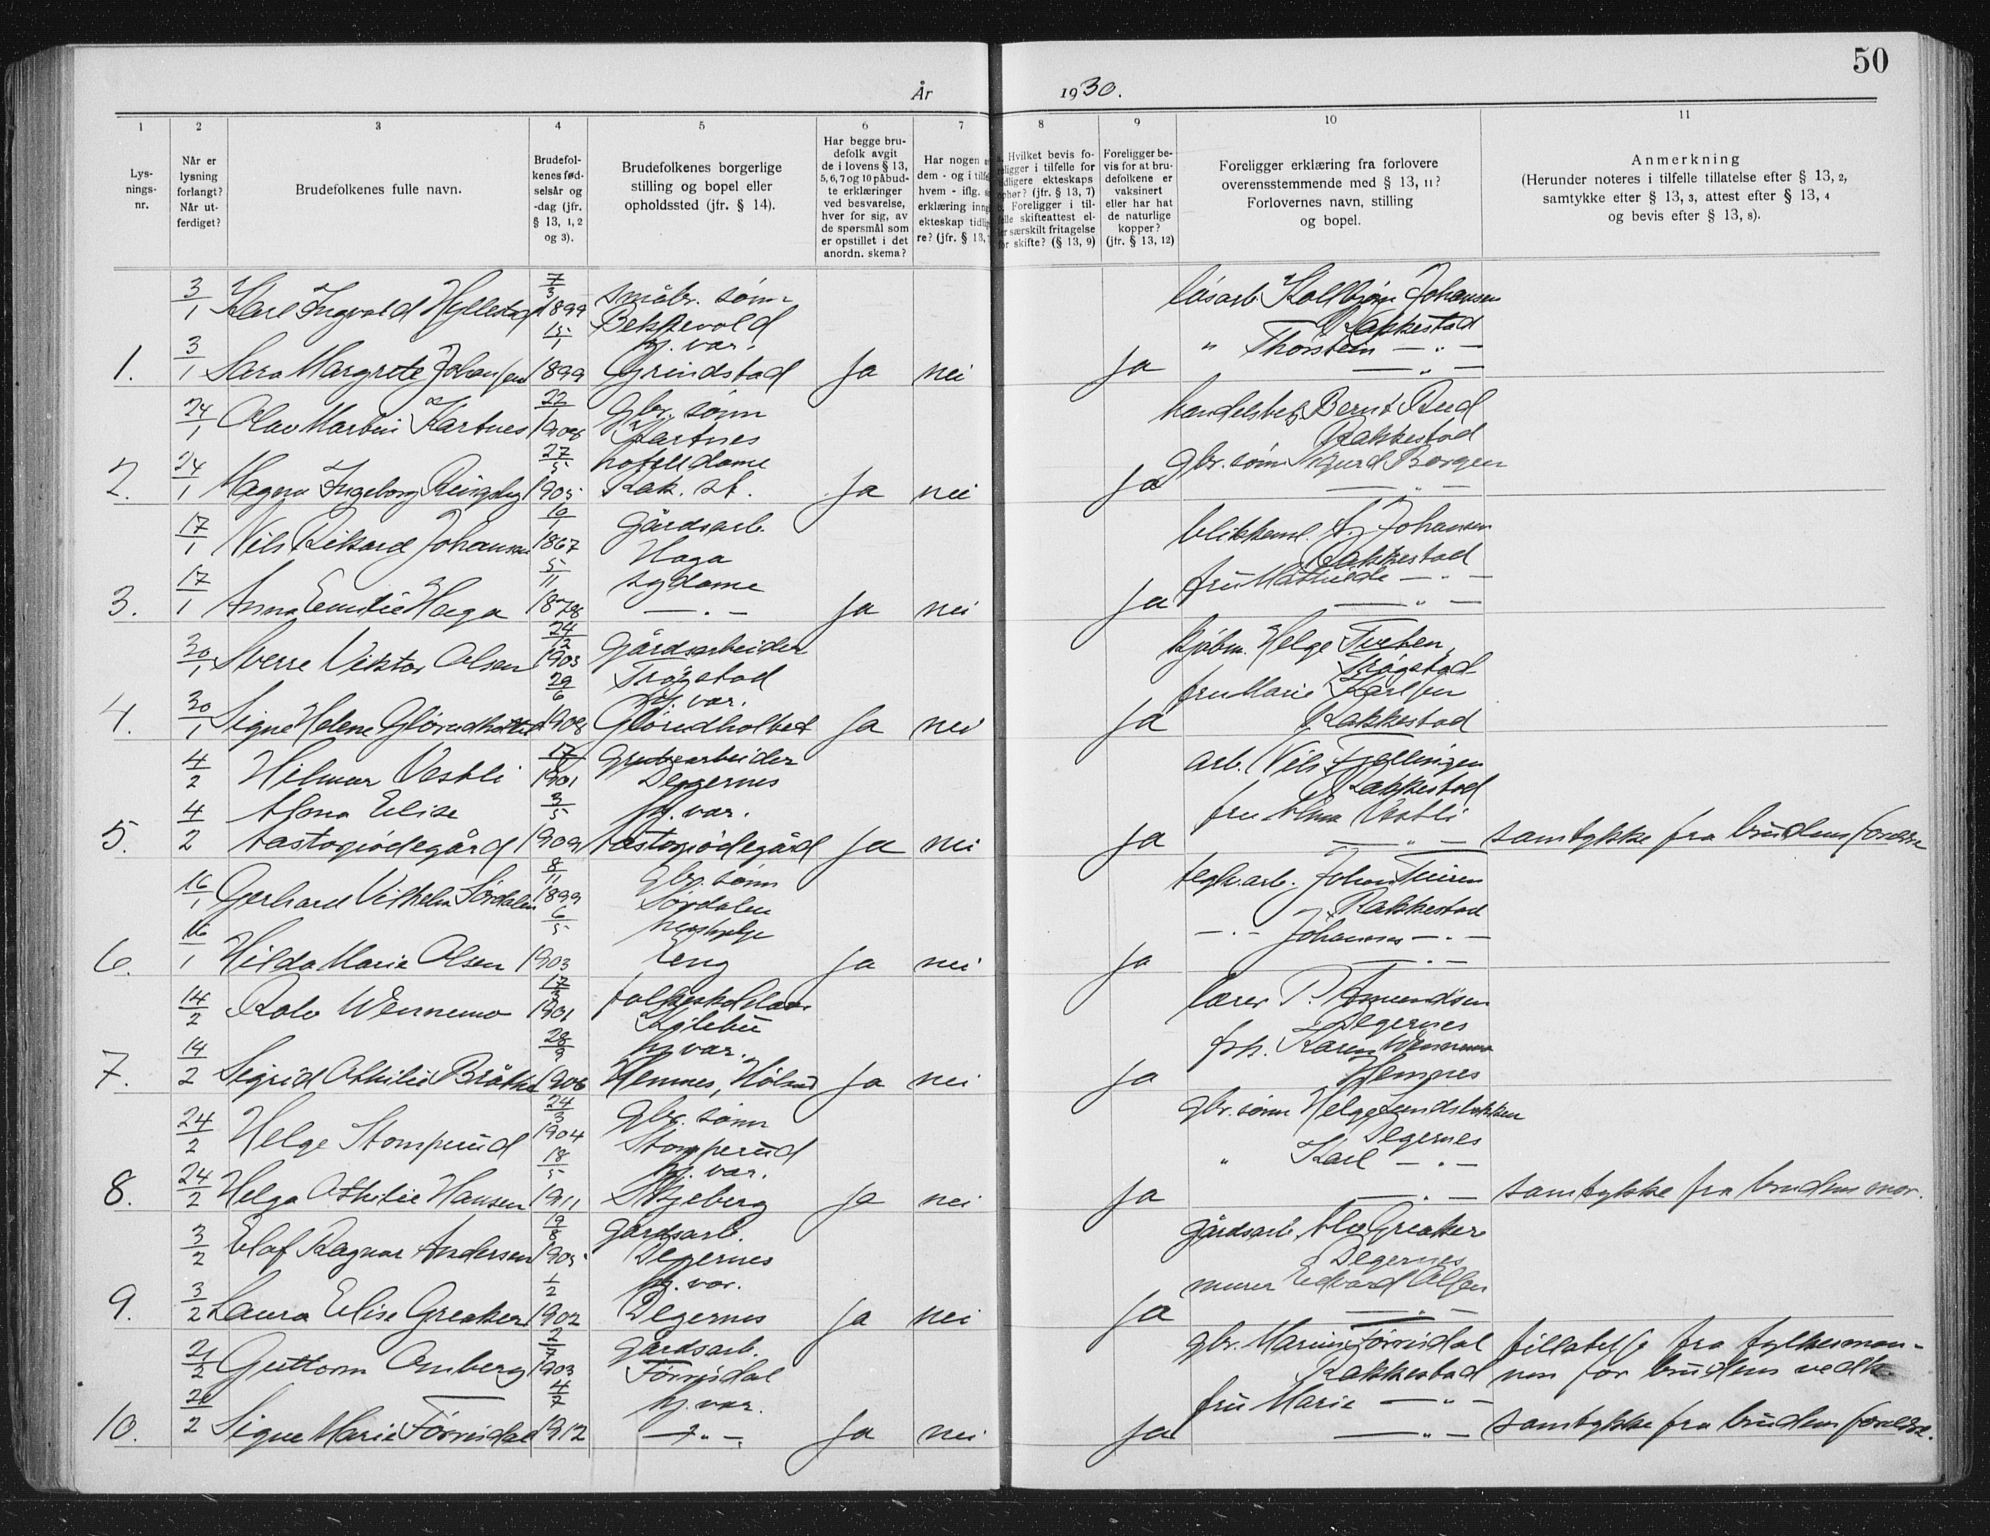 50
År 1930.
1 2 3 4 5 6 7 8 9 10 11
Lys-
nings-
nr.
Når er
lysning
forlangt?
Når ut-
ferdiget?
Brudefolkenes fulle navn.
Brudefol-
kenes fød-
selsår og
-dag (jfr.
§ 13, 1, 2
og 3).
Brudefolkenes borgerlige
stilling og bopel eller
opholdssted (jfr. § 14).
Har begge bru-
defolk avgit
de i lovens § 13,
5, 6, 7 og 10 påbud-
te erklæringer
ved besvarelse,
hver for sig, av
de spørsmål som
er opstillet i det
anordn. skema?
Har nogen
dem - og i
hvem - iflg.
erklæring
ekteskap
re? (jfr. § 13,
Hvilket bevis fo-
religger i tilfelle for
tidligere ekteskaps
ophør? (jfr. § 13, 7)
Foreligger i til-
felle skifteattest el-
ler særskilt fritagelse
for skifte? (§ 13, 9)
Foreligger be-
vis for at bru-
defolkene er
vaksinert
eller har hat
de naturlige
kopper?
(jfr. § 13, 12)
Foreligger erklæring fra forlovere
overensstemmende med § 13, 11?
Forlovernes navn, stilling
og bopel.
Anmerkning
(Herunder noteres i tilfelle tillatelse efter § 13, 2,
samtykke efter § 13, 3, attest efter § 13, 4
og bevis efter § 13, 8).
3/1 Karl Ingvald Hyllestad 7/3 1899 småbr. sønn løsarb. Kolbjørn Johansen
Bekkevold Rakkestad
hj. var. " Thorstein — " —
1. 3/1 Sara Margrete Johansen 15/1 1899 Grindstad Ja nei Ja — " —
24/1 Olav Martin Kartnes 22/1 1908 gbr. sønn handelsbest. Bernt Rud
Kartnes Rakkestad
hotelldame gbr. sønn Sigurd Borgen
2. 24/1 Magna Ingeborg Ringsby 27/5 1905 Rak. st. Ja nei Ja — " —
17/1 Nils Rikard Johansen 19/1 1867 gårdsarb. blikkensl. A. Johansen
Haga Rakkestad
sydame fru Mathilde — " —
3. 17/1 Anna Emilie Haga 5/11 1878 — " — Ja nei Ja — " —
30/1 Sverre Viktor Olsen 24/12 1903 gårdsarbeider kjøbm. Helge Tveten,
Trøgstad Trøgstad
hj. var. fru Marie Karlsen
4. 30/1 Signe Helene Glörudholtet 29/6 1908 Glörudholtet Ja nei Ja Rakkestad
4/2 Hilmar Vestli 17/ 1901 grubearbeider arb. Nils Fjellingen
Degernes Rakkestad
4/2 Alma Elise 3/5 hj. var. fru Alma Vestli
5. Tastogiødegård 1909 Tastogiødegård Ja nei Ja — " — samtykke fra brudens foreldre
16/1 Gerhard Vilhelm Sørdalen 8/11 1899 gbr. sønn teglv. arb. Johan Tveten
Sørdalen Rakkestad
hushjelp — " — Johannes — " —
6. 16/1 Hilda Marie Olsen 6/5 1903 Eng Ja nei Ja — " —
14/2 Rolv Wennemo 17/ 1901 folkeskolelærer lærer P. Amundsen
Degernes
hj. var. frk. Karen Wennemo
7. 14/2 Sigrid Othilie Bråthe 28/9 1906 Hemnes, Høland Ja nei Ja Hemnes
24/2 Helge Stomperud 24/3 1904 gbr. sønn gbr. sønn Helge Lundsløkken
Stomperud Degernes
hj. var. " Karl — " —
8. 24/2 Helga Othilie Hansen 18/5 1911 Skjeberg Ja nei Ja — " — samtykke fra brudens mor.
3/2 Elof Ragnar Andersen 19/8 1905 gårdsarb. gårdsarb. Alv Greaker
Degernes Degernes
hj. var. murer Edvard Olsen
9. 3/2 Laura Elise Greaker 1/2 1902 Degernes Ja nei Ja — " —
21/2 Guttorm Omberg 2/7 1903 gårdsarb. gbr. Marius Førrisdal tillatelse fra fylkesman-
Førrisdal Rakkestad nen for brudens vedk.
hj. var. fru Marie — " —
10. 21/2 Signe Marie Førrisdal 4/7 1912 — " — Ja nei Ja — " — samtykke fra brudens foreldre.